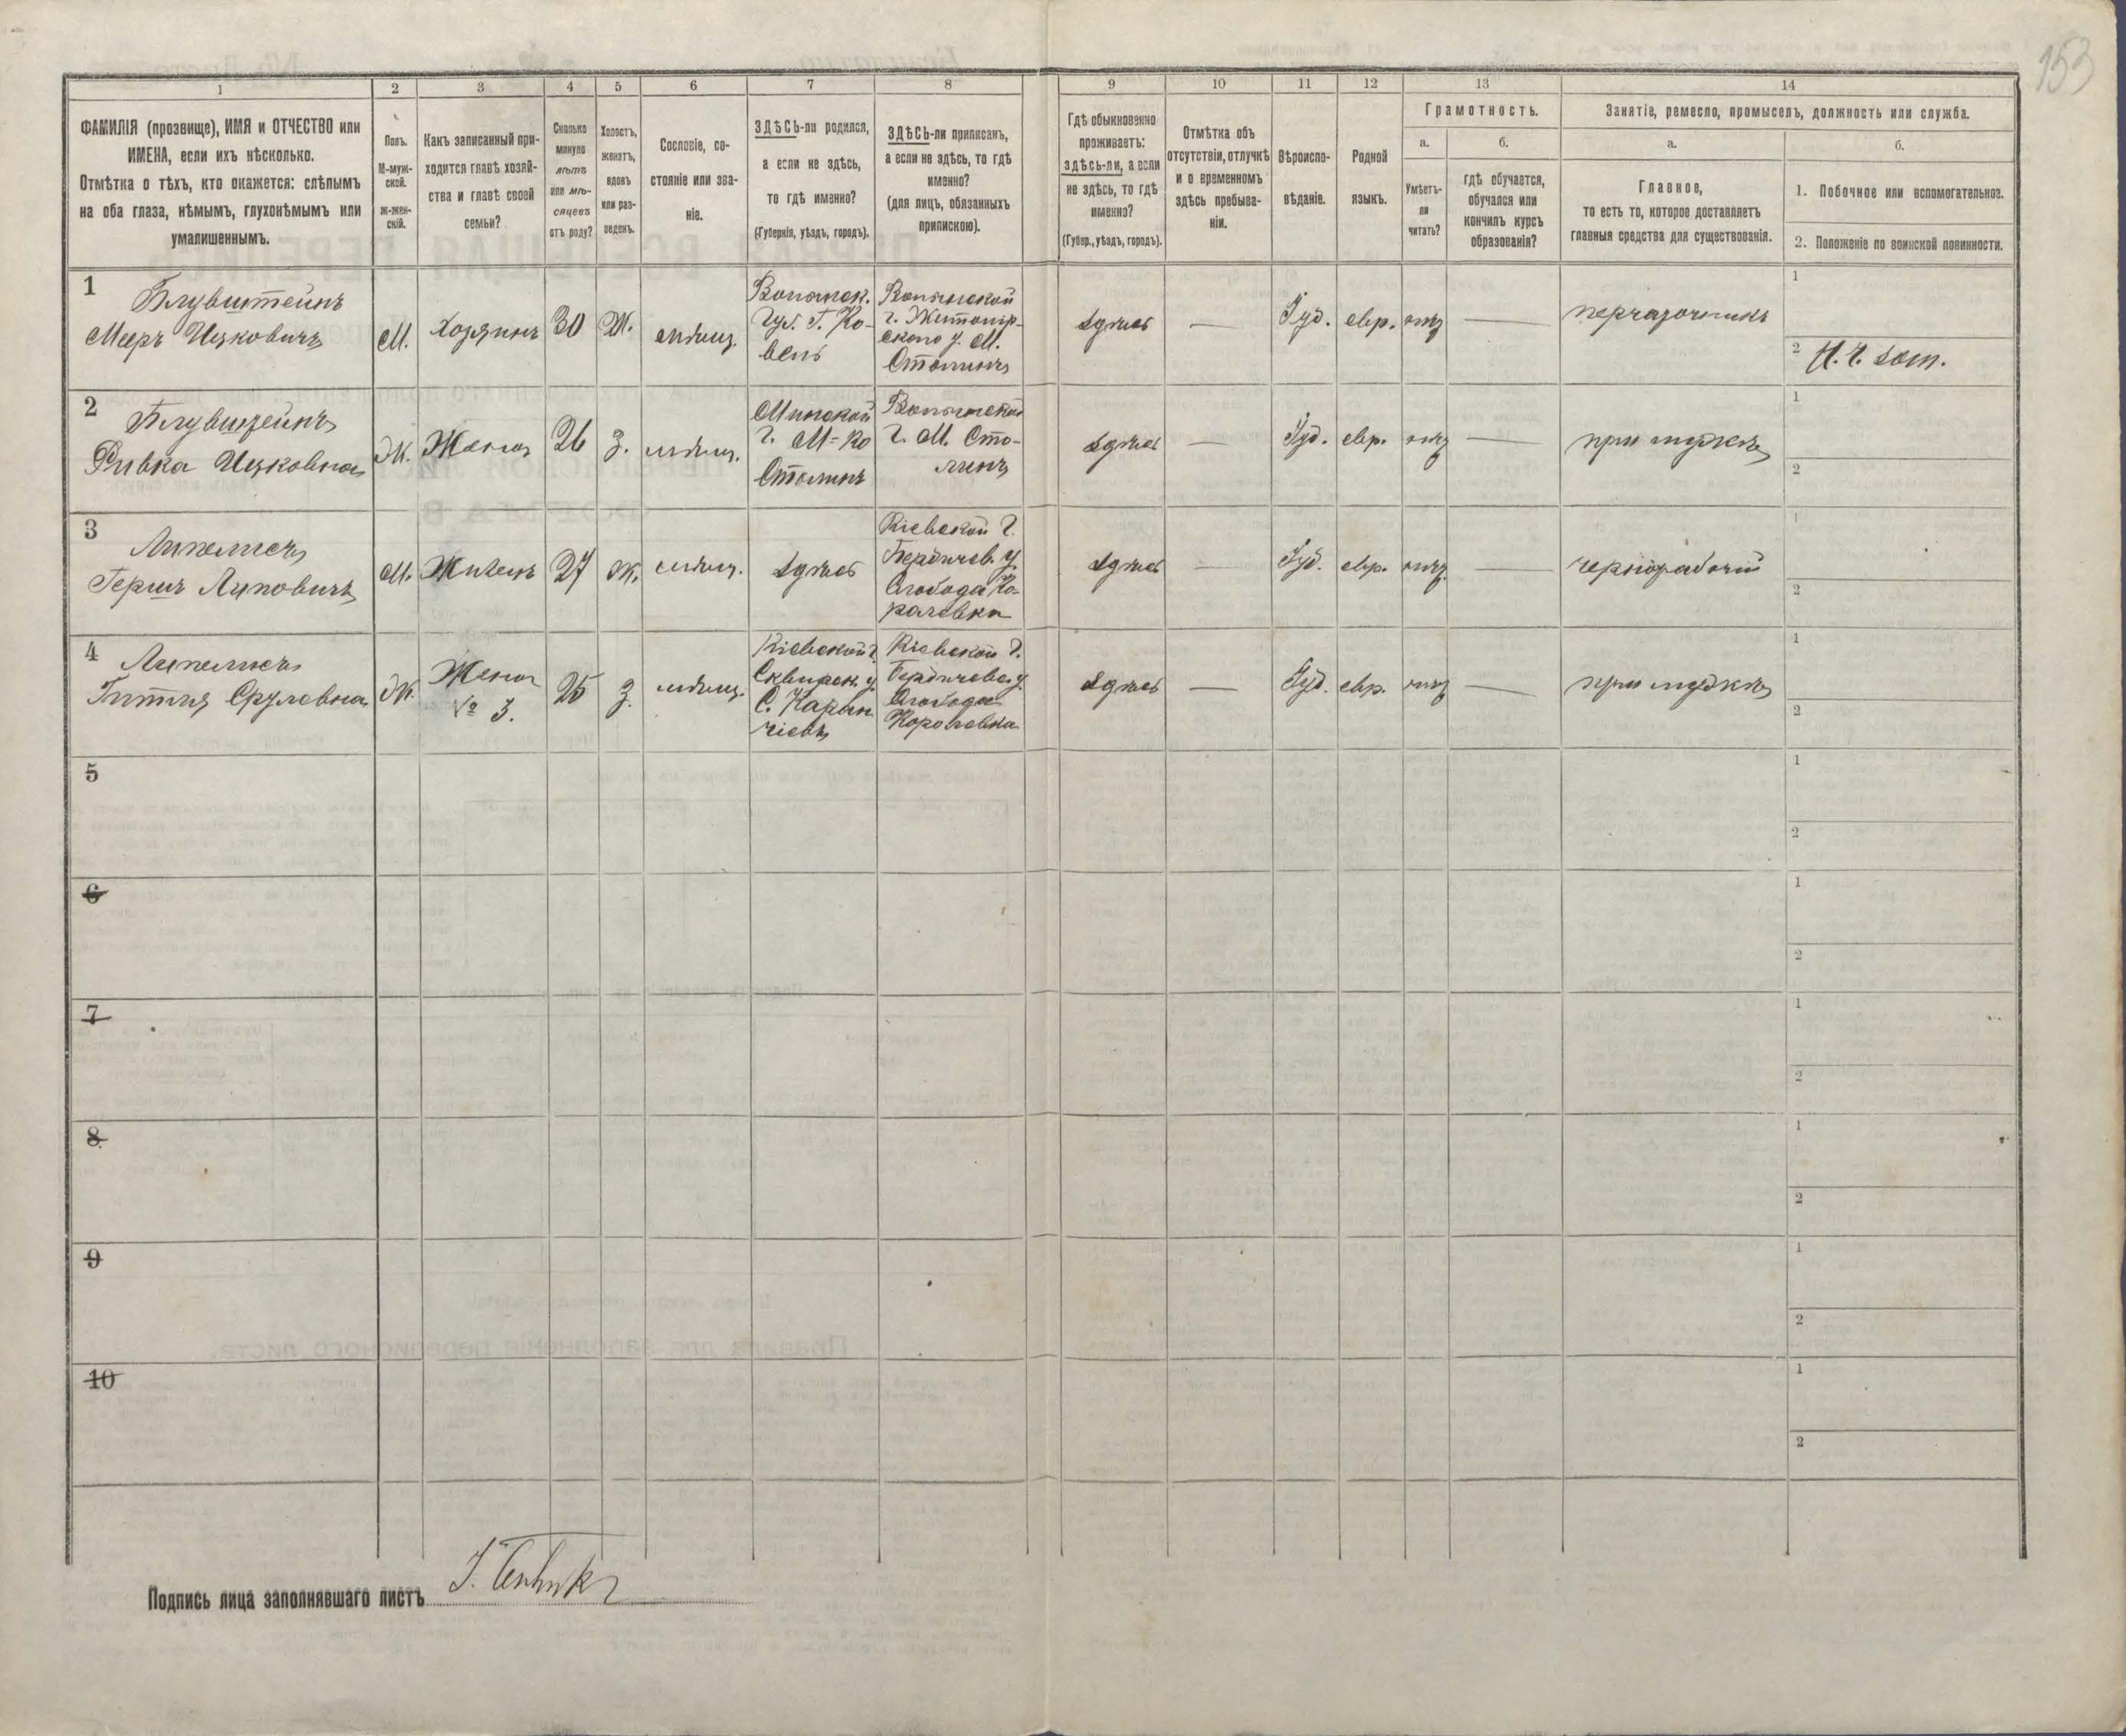 153
1
2
3
4
5
6
7
8
9
10
11
12
13
14
ФАМИЛІЯ (прозвище), ИМЯ и ОТЧЕСТВО или
ИМЕНА, если ихъ нѣсколько.
Отмѣтка о тѣхъ, кто окажется: слѣпымъ
на оба глаза, нѣмымъ, глухонѣмымъ или
умалишеннымъ.
Полъ.
М-муж-
ской.
Ж-жен-
скій.
Какъ записанный при-
ходится главѣ хозяй-
ства и главѣ своей
семьи?
Сколько
минуло
лѣтъ
или мѣ-
сяцевъ
отъ роду?
Холостъ,
женатъ,
вдовъ
или раз-
веденъ.
Сословіе, со-
стояніе или зва-
ніе.
ЗДѢСЬ-ли родился,
а если не здѣсь,
то гдѣ именно?
(Губернія, уѣздъ, городъ).
ЗДѢСЬ-ли приписанъ,
а если не здѣсь, то гдѣ
именно?
(для лицъ, обязанныхъ
припискою).
Гдѣ обыкновенно
проживаетъ:
здѣсь-ли, а если
не здѣсь, то гдѣ
именно?
(Губер., уѣздъ, городъ).
Отмѣтка объ
отсутствіи, отлучкѣ
и о временномъ
здѣсь пребыва-
ніи.
Вѣроиспо-
вѣданіе.
Родной
языкъ.
Грамотность.
а.
Умѣетъ-
ли
читать?
б.
гдѣ обучается,
обучался или
кончилъ курсъ
образованія?
Занятіе, ремесло, промыселъ, должность или служба.
а.
Главное,
то есть то, которое доставляетъ
главныя средства для существованія.
б.
1. Побочное или вспомогательное.
2. Положеніе по воинской повинности.
1
Блувштейнъ
Мееръ Ицковичъ
М.
Хозяинъ
30
Ж.
мѣщ.
Волынск.
Губ. Г. Ко-
вель
Волынской
г. Житомір-
скаго у. М.
Столинъ
здѣсь
—
Іуд.
евр.
—
перчаточникъ
1
2
2
Блувштейнъ
Ривка Ицковна
Ж.
Жена
26
З.
мѣщ.
Минской
г. М-ко
Столинъ
Волынской
г. М. Сто-
линъ
здѣсь
—
Іуд.
евр.
—
при мужѣ
1
2
3
Липелисъ
Гершъ Липовичъ
М.
Жилецъ
27
Ж.
мѣщ.
здѣсь
Кіевской г.
Бердичев. у.
Слобода Ко-
ролевка
здѣсь
—
Іуд.
евр.
—
чернорабочій
1
2
4
Липелисъ
Гитля Сруловна
Ж.
Жена
№ 3.
25
З.
мѣщ.
Кіевской г.
Сквирск. у.
Кіевской г.
Бердичевс. у.
Слобода
Королевка
здѣсь
—
Іуд.
евр.
—
при мужѣ
1
2
5
1
2
6
1
2
7
1
2
8
1
2
9
1
2
10
1
2
Подпись лица заполнявшаго листъ